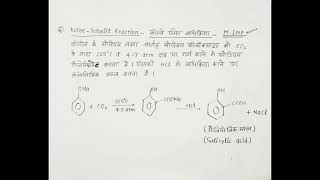 Kolbe-Schmitt Reaction - कोल्बे श्मिट अभिक्रिया - M.Imp
फीनॉल के सोडियम लवण अर्थात् सोडियम फीनॉक्साइड को CO₂
के साथ 125°C व 4-7 atm दाब पर गर्म करने से सोडियम
सैलिसिलेट बनता है। जिसकी HCl से अभिक्रिया कराने पर
सैलिसिलिक अम्ल बनता है।
ONa + CO₂ 125°C 4-7 atm OH HCl OH COOH + NaCl
(सैलिसिलिक अम्ल)
(Salicylic acid)